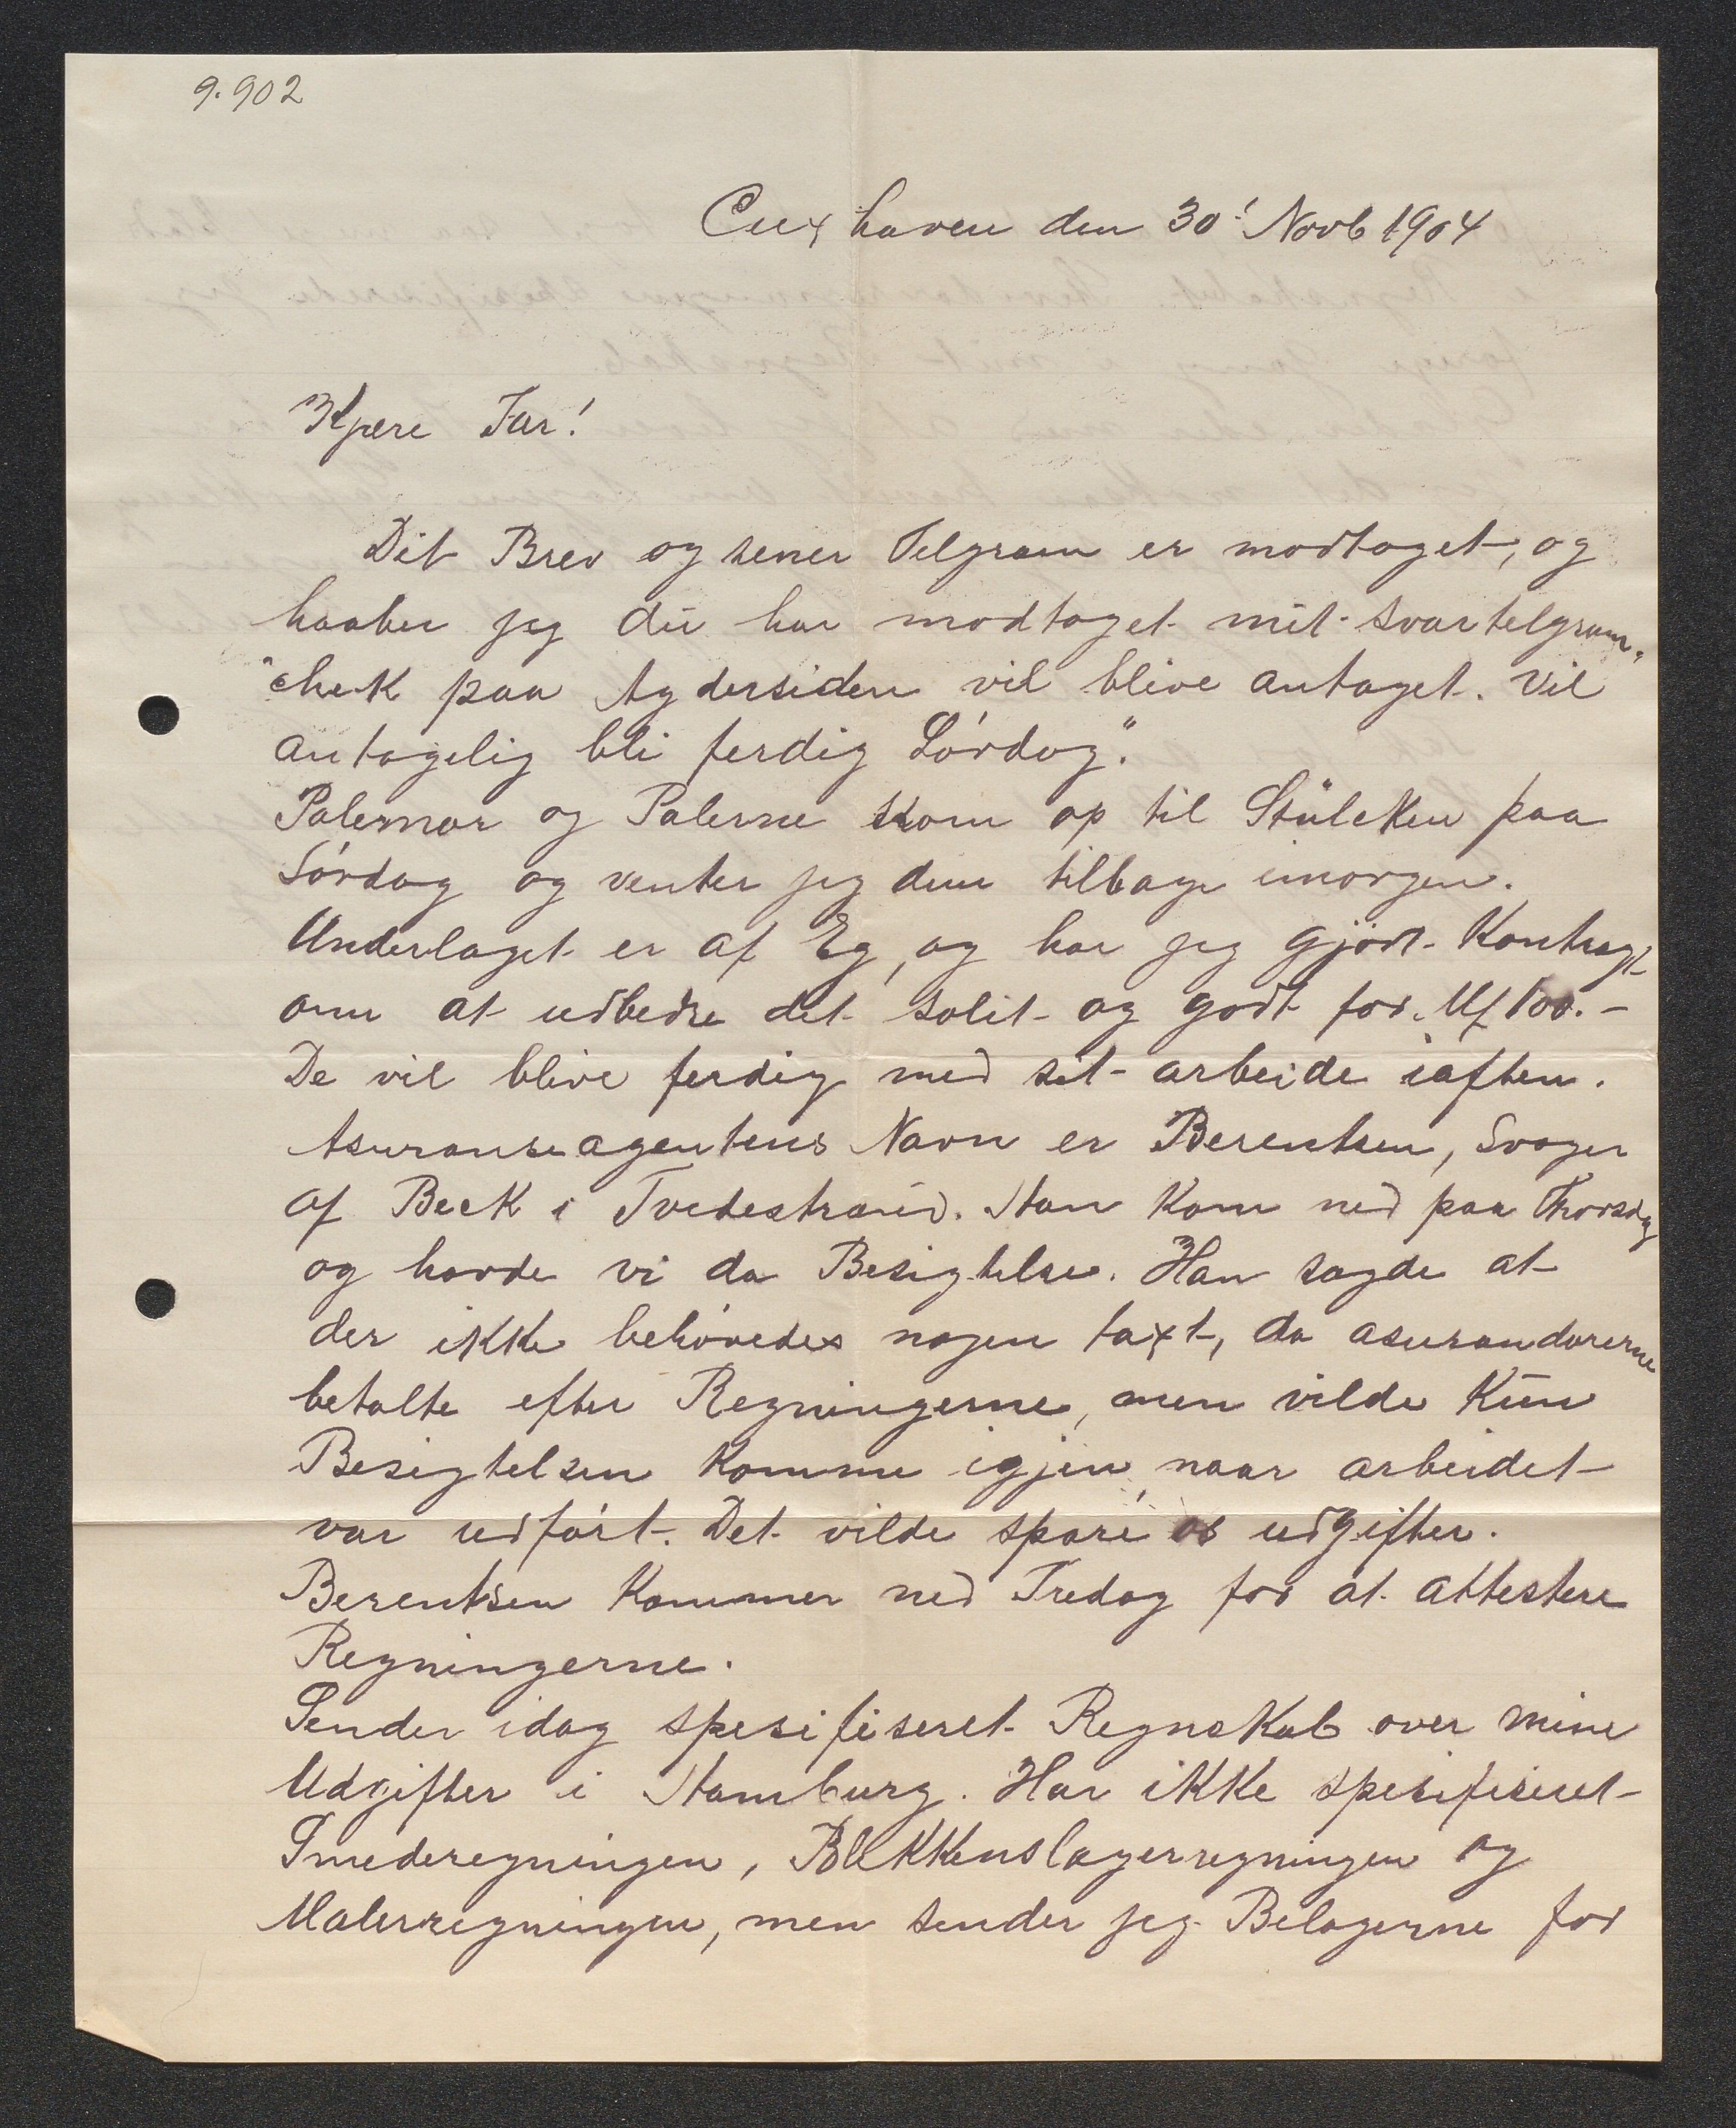 9.902
Cuxhaven den 30' Novb 1904
Kjære Far!
Dit Brev og sener Telgram er modtaget, og
haaber jeg du har modtaget mit svartelgram.
"chek paa Agdersiden vil blive antaget. Vil
antagelig bli ferdig Lördag".
Palernor og Palerne kom op til Stülcken paa
Lördag og venter jeg dem tilbage imorgen.
Underlaget er af Eg, og har jeg gjort Kontragt
om at udbedre det solit og godt for M 100.-
De vil blive ferdig med sit arbeide iaften.
Asuranseagentens Navn er Berentsen, Svoger
af Beck i Tvedestrand. Han kom ned paa Thorsdag
og havde vi da Besigtelse. Han sagde at
der ikke behövedes nogen taxt, da asurandörerne
betalte efter Regningerne, men vilde kun
Besigtelsen komme igjen, naar arbeidet
var udfört. Det vilde spare os udgifter.
Berentsen kommer ned Fredag for at attestere
Regningerne.
Sender idag spesifiseret Regnskab over mine
Udgifter i Hamburg. Har ikke spesifiseret
Smederegningen, Blikkenslagerregningen og
Malerregningen, men sender jeg Belagerne for